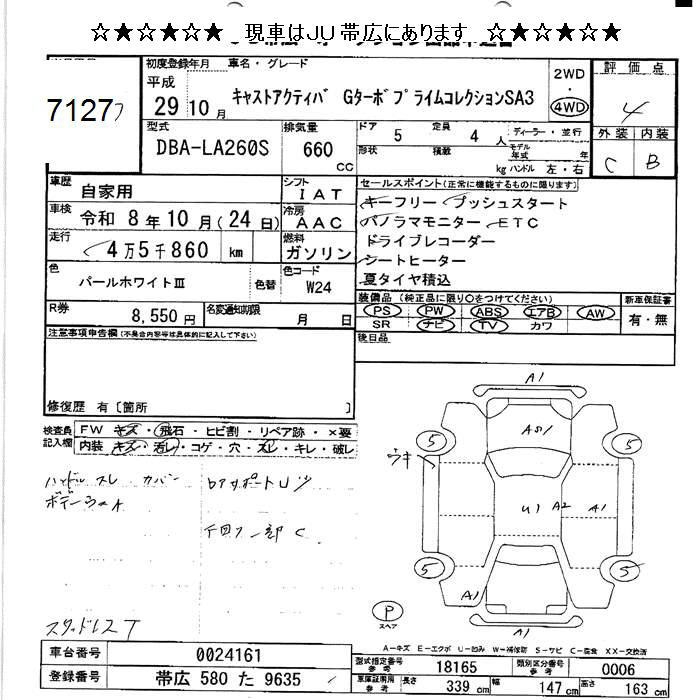 ☆★☆★☆★ 現車はJU帯広にあります ☆★☆★☆★
7127
初度登録年月
車名・グレード
平成
29 10月
キャストアクティバ GターボプライムコレクションSA3
2WD
・
4WD
評価点
4
外装 内装
C B
型式
DBA-LA260S
排気量
660
CC
ドア
5
定員
4人
ディーラー・並行
形状
積載
kg
モデル年式
年
ハンドル 左・右
車歴
自家用
シフト
IAT
車検
令和 8年10月(24日)
冷房
AAC
走行
4万5千860 km
燃料
ガソリン
色
パールホワイトⅢ
色替
色コード
W24
R券
8,550円
名変通知期限
月 日
セールスポイント(正常に機能するものに限ります)
キーフリー プッシュスタート
パノラマモニター ETC
ドライブレコーダー
シートヒーター
夏タイヤ積込
装備品(純正品に限り○をつけてください)
新車保証書
PS PW ABS エアB AW
SR ナビ TV カワ
有・無
後日品
注意事項申告欄(不具合内容等は具体的に記入して下さい)
修復歴 有〔箇所 〕
検査員記入欄
FW キズ・飛石・ヒビ割・リペア跡・×要
内装 キズ・汚レ・コゲ・穴・スレ・キレ・破レ
ハンドル スレ カバー
下回リ一部 C
スタッドレスT
A1
5
5
A51
ウキ
U1
A2
A1
5
5
A1
A1
P
スペア
A-キズ E-エクボ U-凹み W-補修跡 S-サビ C-腐食 XX-交換済
車台番号
0024161
登録番号
帯広 580 た 9635
型式指定番号
参考
18165
類別区分番号
参考
0006
車庫証明用
参考
長さ
339 cm
幅
147 cm
高さ
163 cm